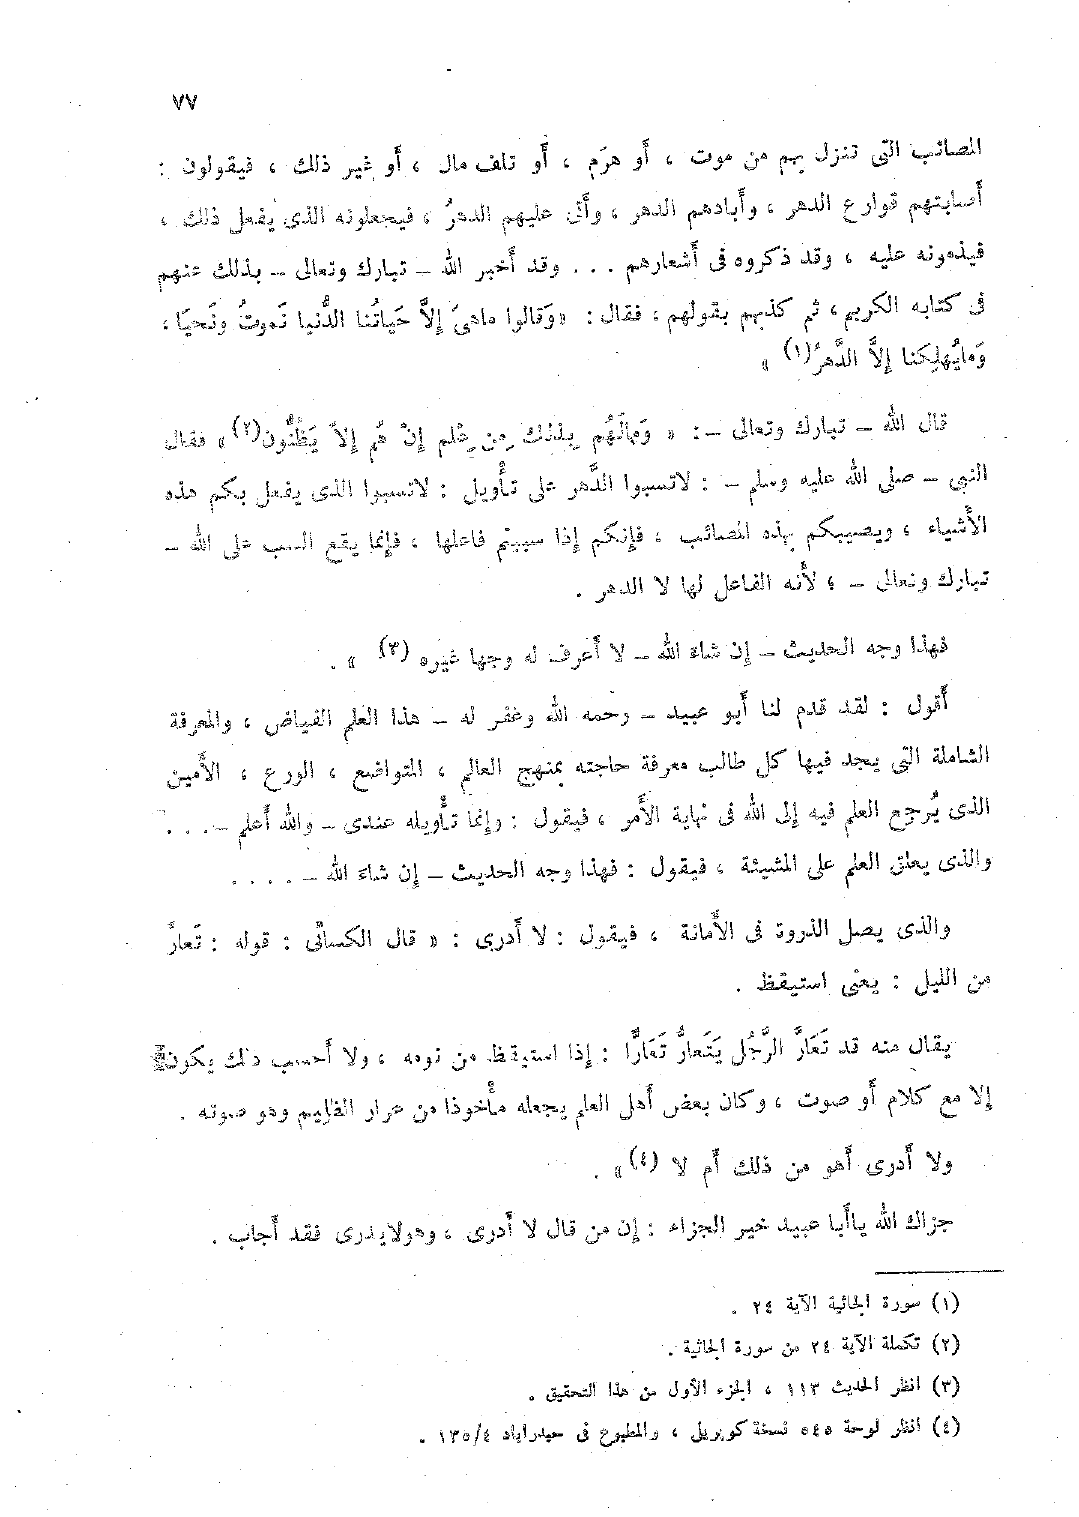 ٧٧
المصائب التى تنزل بهم من موت ، أو هرَم ، أو تلف مال ، أو غير ذلك ، فيقولون :
أصابتهم قوارع الدهر ، وأبادهم الدهر ، وأتى عليهم الدهرُ ، فيجعلونه الذى يفعل ذلك ،
فيذمونه عليه ، وقد ذكروه فى أشعارهم ... وقد أخبر الله – تبارك وتعالى – بذلك عنهم
فى كتابه الكريم ، ثم كذبهم بقولهم ، فقال : « وَقالوا ماهىَ إلاَّ حَياتُنا الدُّنيا نَموتُ ونَحيَا ،
وَمايُهلِكنا إلاَّ الدَّهرُ(١) »
قال الله – تبارك وتعالى – : « وَمالَهُم بِذلكَ مِن عِلم إنْ هُم إلاَّ يَظُنُّون(٢) » فقال
النبى – صلى الله عليه وسلم – : لاتسبوا الدَّهر على تأويل : لاتسبوا الذى يفعل بكم هذه
الأشياء ، ويصيبكم بهذه المصائب ، فإنكم إذا سببتم فاعلها ، فإنما يقع السب على الله –
تبارك وتعالى – ؛ لأنه الفاعل لها لا الدهر .
فهذا وجه الحديث – إن شاء الله – لا أعرف له وجها غيره (٣) » .
أقول : لقد قدم لنا أبو عبيد – رحمه الله وغفر له – هذا العلم الفياض ، والمعرفة
الشاملة التى يجد فيها كل طالب معرفة حاجته بمنهج العالم ، المتواضع ، الورع ، الأمين
الذى يُرجع العلم فيه إلى الله فى نهاية الأمر ، فيقول : وإنما تأويله عندى – والله أعلم – ...
والذى يعلق العلم على المشيئة ، فيقول : فهذا وجه الحديث – إن شاء الله – ....
والذى يصل الذروة فى الأمانة ، فيقول : لا أدرى : « قال الكسائى : قوله : تَعارَّ
من الليل : يعنى استيقظ .
يقال منه قد تَعَارَّ الرَّجُل يَتَعارُّ تَعَارًّا : إذا استيقظ من نومه ، ولا أحسب ذلك يكون
إلا مع كلام أو صوت ، وكان بعض أهل العلم يجعله مأخوذا من عرار الظليم وهو صوته .
ولا أدرى أهو من ذلك أم لا (٤)» .
جزاك الله ياأبا عبيد خير الجزاء : إن من قال لا أدرى ، وهولايدرى فقد أجاب .
(١) سورة الجاثية الآية ٢٤ .
(٢) تكملة الآية ٢٤ من سورة الجاثية .
(٣) انظر الحديث ١١٣ ، الجزء الأول من هذا التحقيق .
(٤) انظر لوحة ٥٤٥ نسخة كوبريل ، والمطبوع فى حيدراباد ١٣٥/٤ .